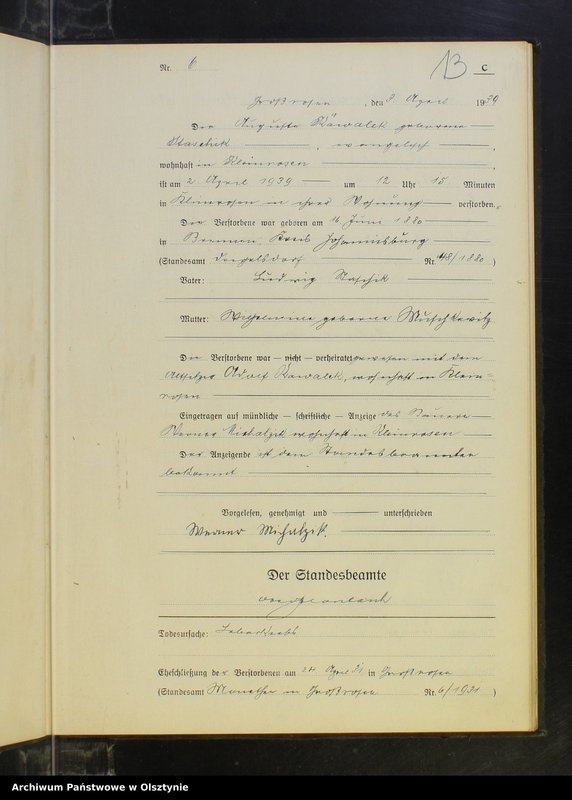 Nr. 6
B C
Großrosen, den 3. April 1939
Die Auguste Kawalek geborene
Staschik, evangelisch,
wohnhaft in Kleinrosen
ist am 2. April 1939 um 12 Uhr 15 Minuten
in Kleinrosen in ihrer Wohnung verstorben.
Die Verstorbene war geboren am 16. Juni 1880
in Kreis Johannisburg
(Standesamt Nr. 48/1880)
Vater: Ludwig Staschik
Mutter: Wilhelmine geborene Muschkewitz
Die Verstorbene war — nicht — verheiratet gewesen mit dem
Altsitzer Adolf Kawalek, wohnhaft in Klein-
rosen
Eingetragen auf mündliche — schriftliche — Anzeige des Bauern
Werner Michalzik wohnhaft in Kleinrosen
Der Anzeigende ist dem Standesbeamten
bekannt
Vorgelesen, genehmigt und unterschrieben
Werner Michalzik.
Der Standesbeamte
Todesursache:
Eheschließung der Verstorbenen am April in Großrosen
(Standesamt in Großrosen Nr. 6/1921)
Archiwum Państwowe w Olsztynie